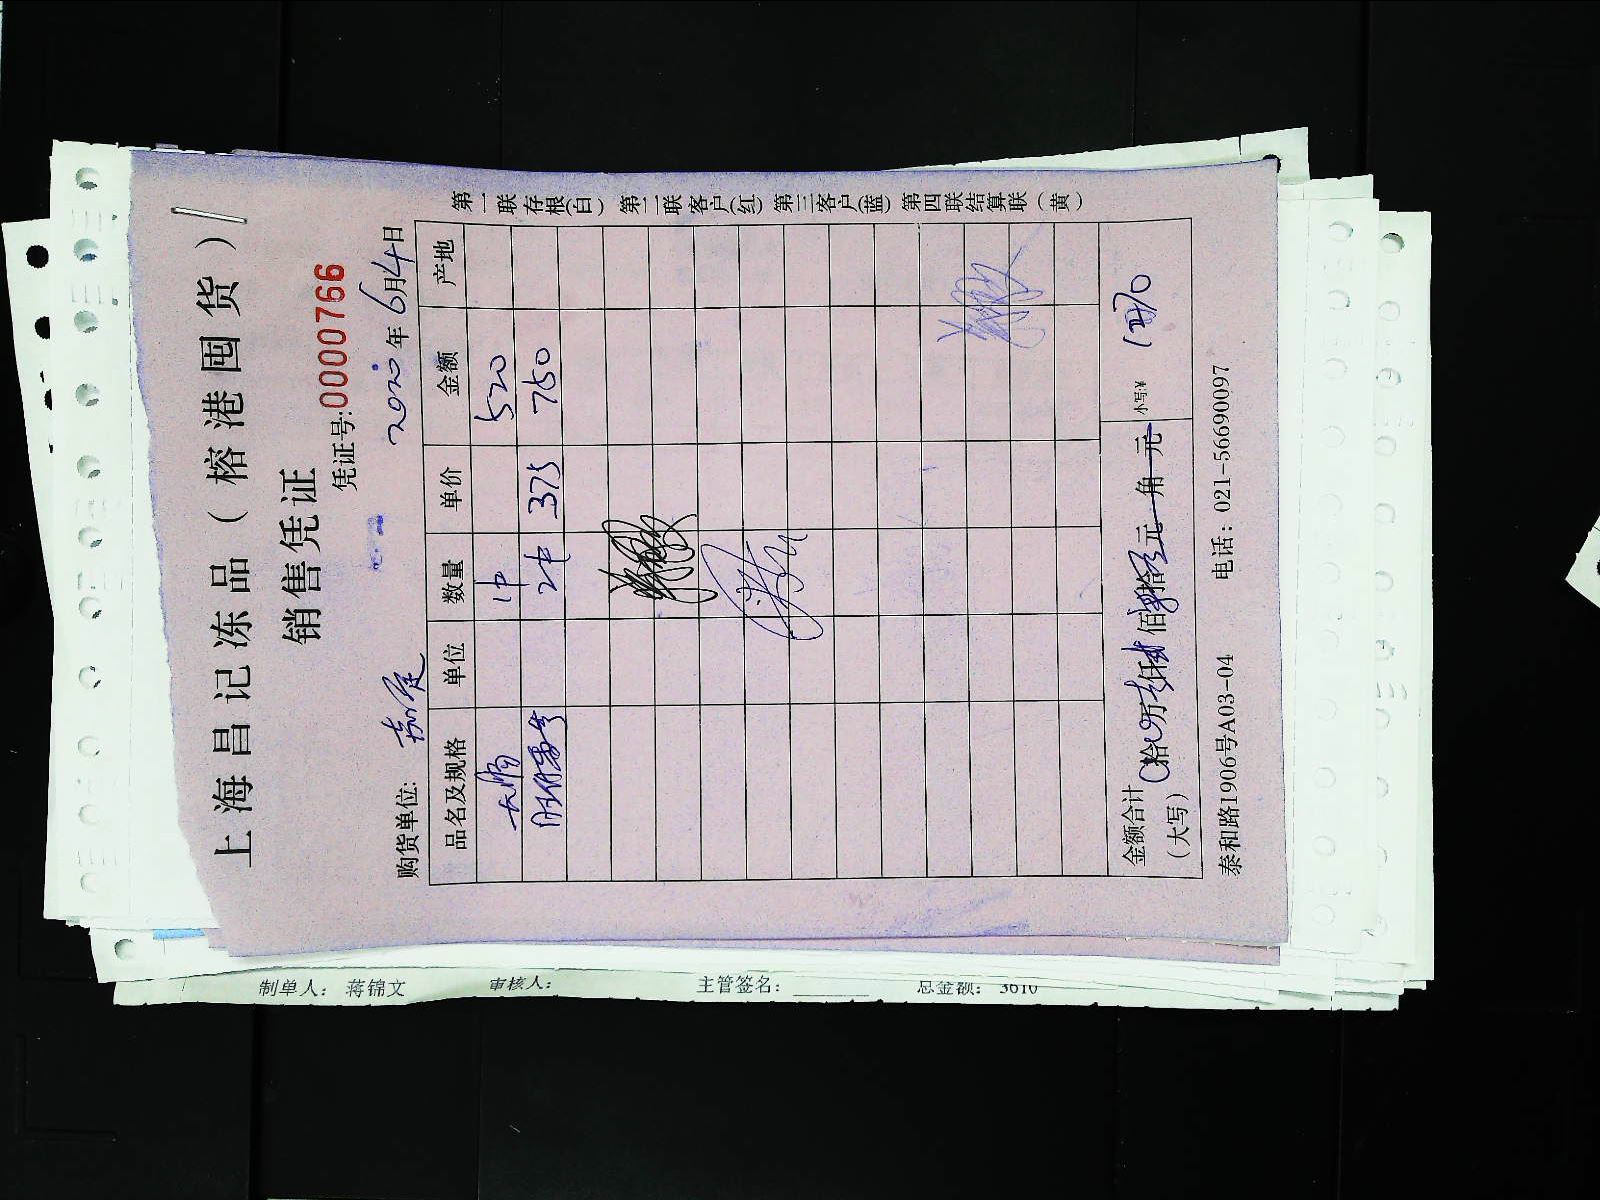 上海昌记冻品（榕港囤货）
销售凭证
凭证号:0000766
购货单位: 2020年6月4日
品名及规格 单位 数量 单价 金额 产地
大肠 1中 520
2中 375 750
金额合计（大写） 拾 万 仟 佰 拾 元 角 元 小写:¥ 1270
泰和路1906号A03-04 电话：021-56690097
第一联存根(白) 第二联客户(红) 第三客户(蓝) 第四联结算联（黄）
制单人： 蒋锦文 审核人： 主管签名： 总金额： 3610